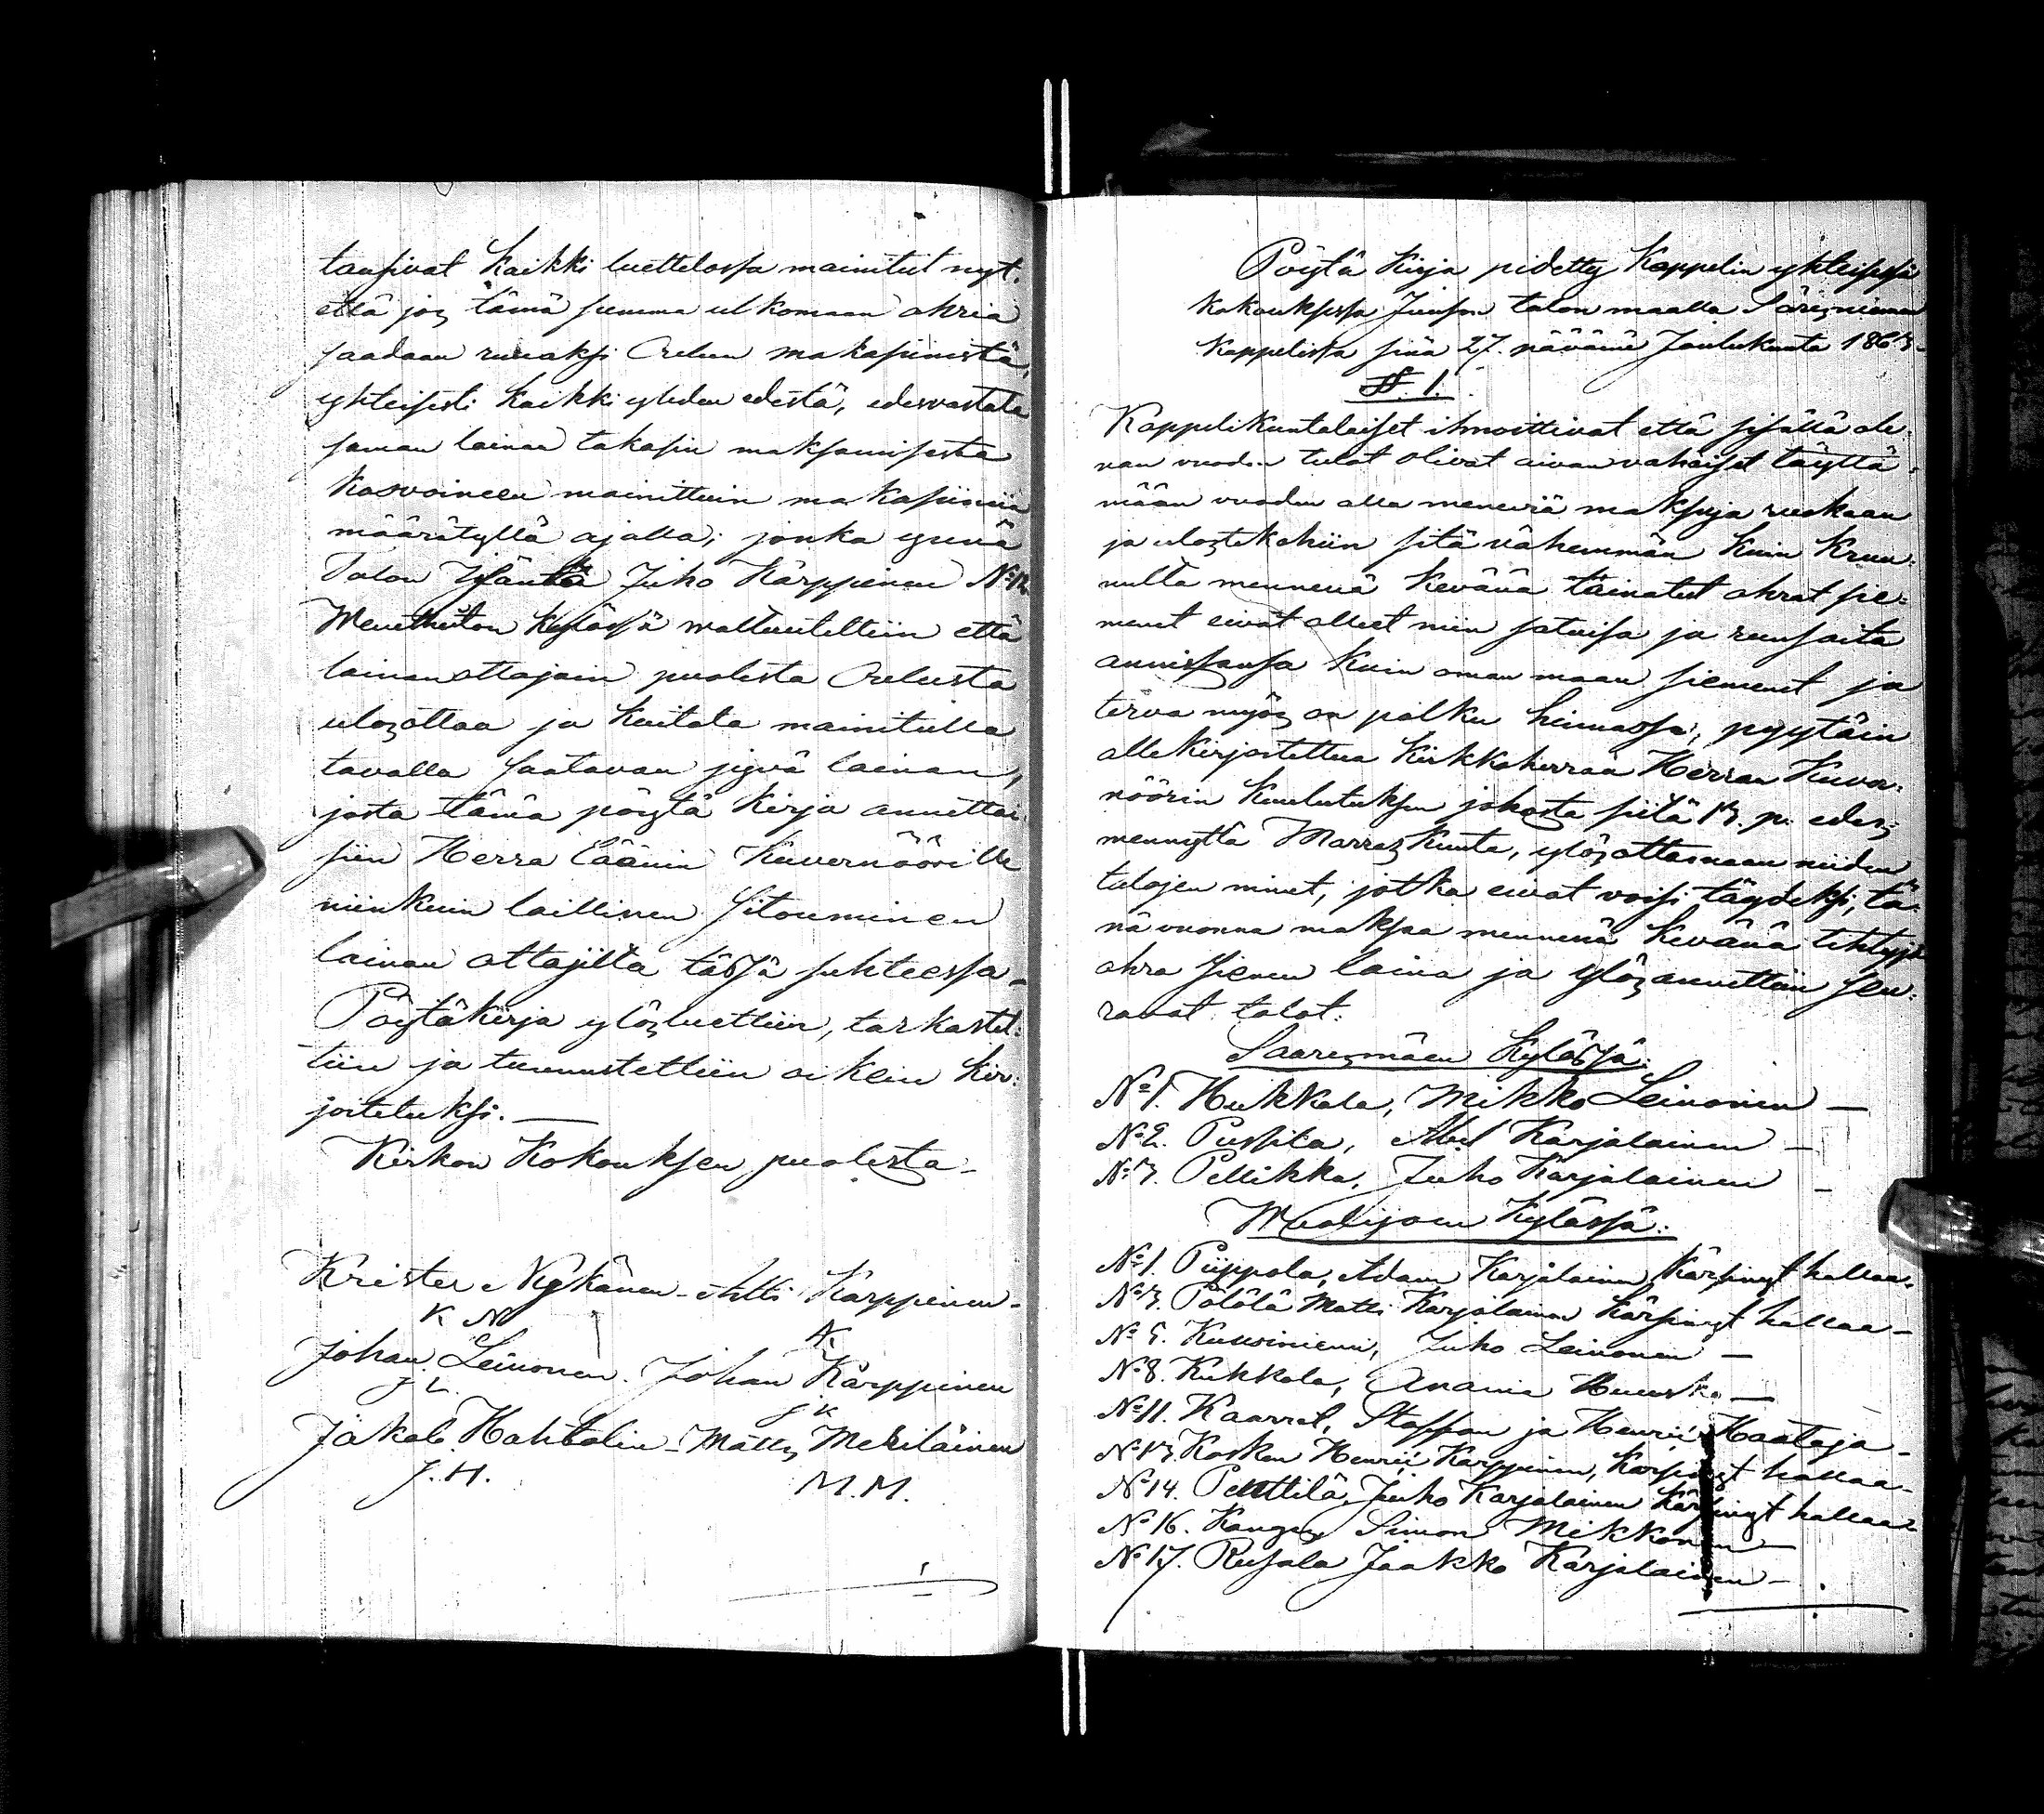 taupivat kaikki luettelossa mainitut nyt.
että jos tämä summa ulkomaan ohria
saadaan ruuaksi Oulun makasiinista,
yhteisesti kaikki yhden edestä, edesvastata
saman lainan takasin maksamisesta
kasvoineen mainittuin makasiiniin
määrätyllä ajalla; jonka ynnä
Talon Isäntä Juho Kärppinen No 12
kylässä waltuuteltiin että
lainan ottajain puolesta Oulusta
ulosottaa ja kuitata mainitulla
tavalla saatavan jyvä lainan,
josta tämä pöytä kirja annettai
siin Herra Läänin Kuvernöörille
niinkuin laillinen sitouminen
lainan ottajilta tässä suhteessa-
Pöytäkirja ylösluettiin, tarkastel:
tiin ja tunnustettiin oikein kir:
joiteluksi. —
Kirkon Kokouksen puolesta-
Krister Nykänen - Antti Karppinen-
K N AK
Johan Leinonen. Johan Kärppinen
J L. J K
Jakob Hahtolin - Matts Meriläinen
J. H. M. M.
Pöytä Kirja pidetty Kappelin yhteisessä
kokouksessa Juuson talon maalla Säresniemen
kappelissa sinä 27. päivänä Joulukuuta 1863-
§. 1.
Kappelikuntalaiset ilmoittivat että sisällä ole:
van vuoden tulot olivat aivan vähäiset täyttä:
mään vuoden alla meneviä maksuja ruokaan
ja ulostekohiin sitä vähemmän kuin Kruu:
nulta mennenä kevänä lainatut ohrat sie:
menet eivät olleet niin satuisa ja runsaita
annissansa kuin oman maan siemenet ja
terva myös on palku hinnassa; pyytäin
allekirjoitettua Kirkkoherraa Herran Kuver:
nöörin kuulutuksen johosta siitä 13. p. edes:
mennyttä Marraskuuta, ylösottamaan niiden
tulojen nimet, jotka eivät voisi täydeksi, tä:
nä vuonna maksaa mennenä kevänä tehtyjä
ohra siemen laina ja ylösannettiin seu:
ravat talot:
Saaresmäen Kylässä:
No 1. Hukkala, Mikko Leinonen —
No 2. Pussila, Abel Karjalainen —
No 3. Pellikka, Juho Karjalainen —
Wuolijoen Kylässä:
No 1. Piippola, Adam Karjalainen kärsinyt hallaa-
No 3. Pölölä Matti Karjalainen kärsinyt hallaa-
No 5. Kuusiniemi, Juho Leinonen —
No 8. Kukkola, Anania Huusko —
No 11. Kaarret, Staffan ja Henrii Haataja-
No 13. Kosken Henrii Karppinen, kärsinyt hallaa-
No 14. Penttilä Juho Karjalainen kärsinyt hallaa-
No 16. Kangas Simon Mikkonen —
No 17. Rusala Jaakko Karjalainen —